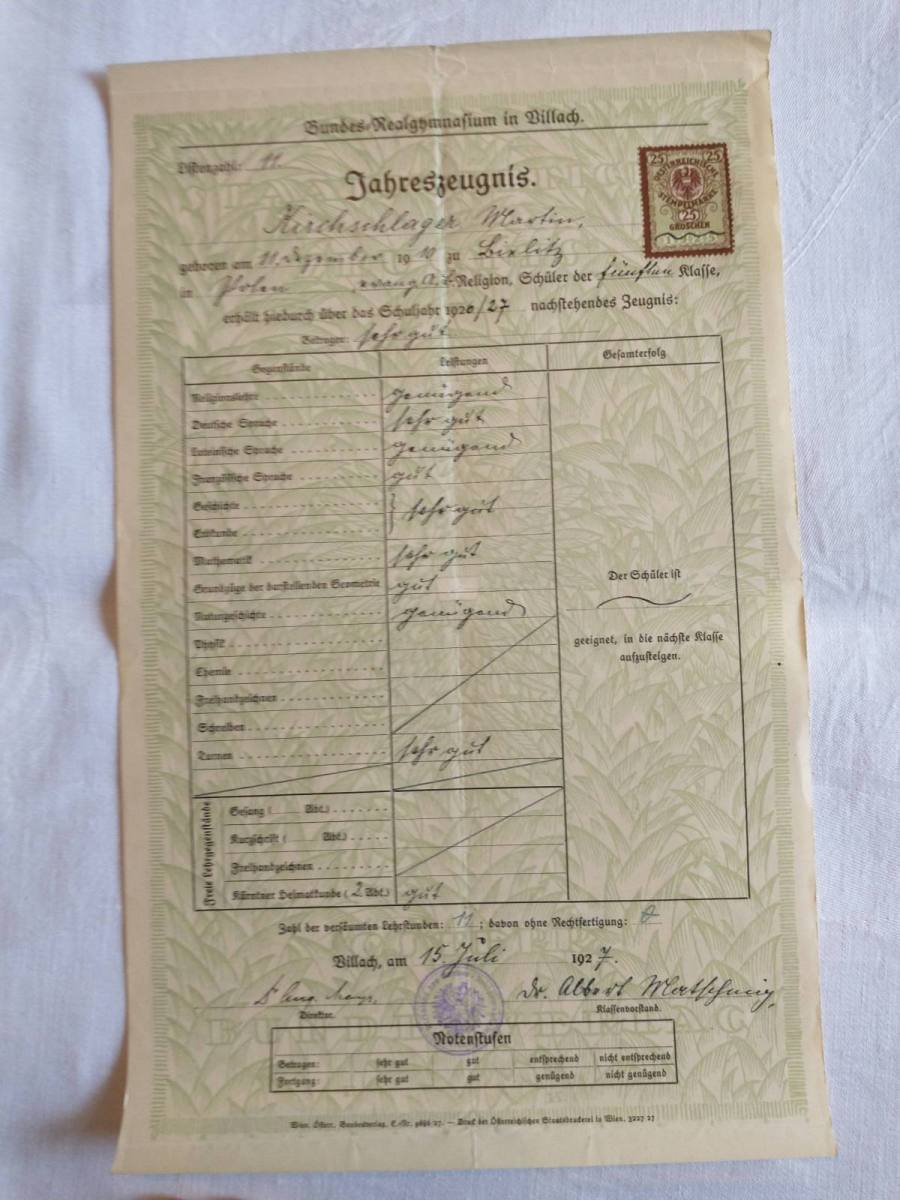 Bundes-Realgymnasium in Villach.
Listenzahl: 11
Jahreszeugnis.
25 25
OESTERREICHISCHE
STEMPELMARKE
25
GROSCHEN
1925
Kirchschlager Martin,
geboren am 11. Dezember 1910 zu Bielitz
in Polen, evang. A. B. Religion, Schüler der fünften Klasse,
erhält hiedurch über das Schuljahr 1926/27 nachstehendes Zeugnis:
Betragen: sehr gut
Gegenstände Leistungen Gesamterfolg
Religionslehre genügend
Deutsche Sprache sehr gut
Lateinische Sprache genügend
Französische Sprache gut
Geschichte
Erdkunde } sehr gut
Mathematik sehr gut
Grundzüge der darstellenden Geometrie gut
Naturgeschichte genügend
Physik
Chemie
Freihandzeichnen
Schreiben
Turnen sehr gut
Der Schüler ist
geeignet, in die nächste Klasse
aufzusteigen.
Freie Lehrgegenstände
Gesang ( Abt.)
Kurzschrift ( Abt.)
Freihandzeichnen
Kärntner Heimatkunde (2. Abt.) gut
Zahl der versäumten Lehrstunden: 11; davon ohne Rechtfertigung: 0
Villach, am 15. Juli 1927.
Dr. Albert Matschnig,
Direktor. Klassenvorstand.
Notenstufen
Betragen: sehr gut gut entsprechend nicht entsprechend
Fortgang: sehr gut gut genügend nicht genügend
Wien. Österr. Bundesverlag. E.-Nr. 9686 27. — Druck der Österreichischen Staatsdruckerei in Wien. 3227 27